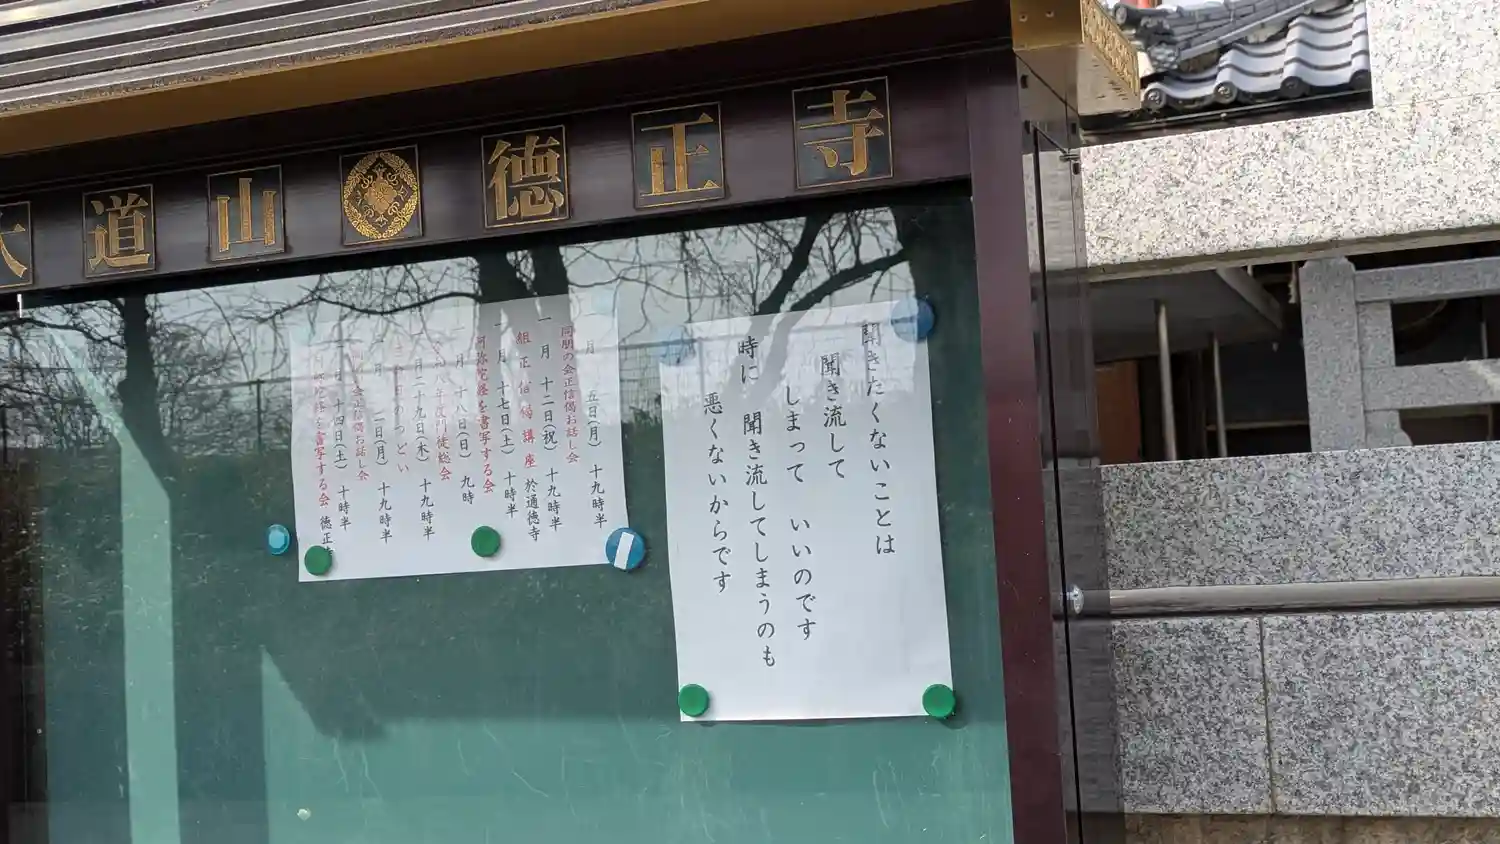 大道山 徳正寺
聞きたくないことは
聞き流して
しまって いいのです
時に 聞き流してしまうのも
悪くないからです
月 五日(月) 十九時半
同朋の会正信偈お話し会
一月 十二日(祝) 十九時半
組正信偈講座 於通徳寺
一月 十七日(土) 十時半
阿弥陀経を書写する会
月 十八日(日) 九時
年度門徒総会
月二十九日(木) 十九時半
のつどい
月 二日(月) 十九時半
会正信偈お話し会
月 十四日(土) 十時半
経を書写する会 徳正寺